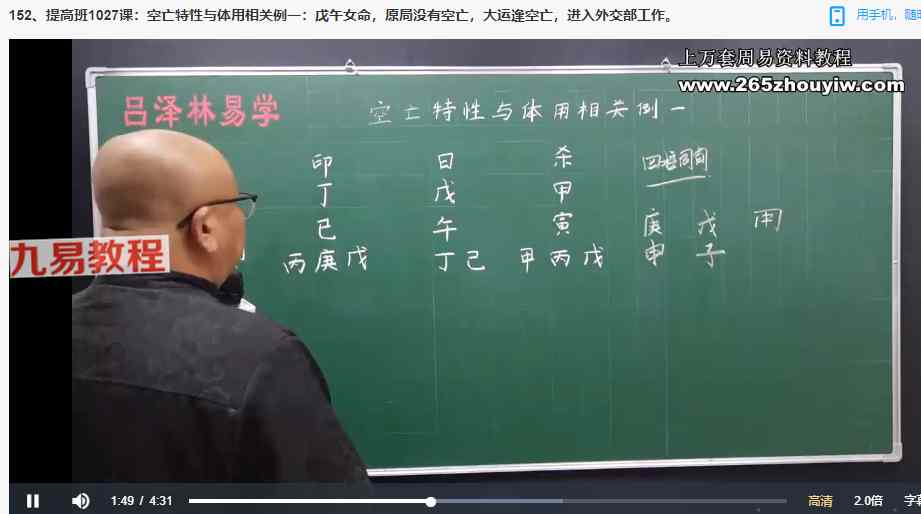 152、提高班1027课：空亡特性与体用相关例一：戊午女命，原局没有空亡，大运逢空亡，进入外交部工作。
用手机，随
上万套周易资料教程
www.265zhouyiw.com
吕泽林易学
空亡特性与体用相关例一
印 日 杀
丁 戊 甲
巳 午 寅 庚 戊 用
丙庚戊 丁己 甲丙戊 申 子
九易教程
1:49 / 4:31
高清 2.0倍 字